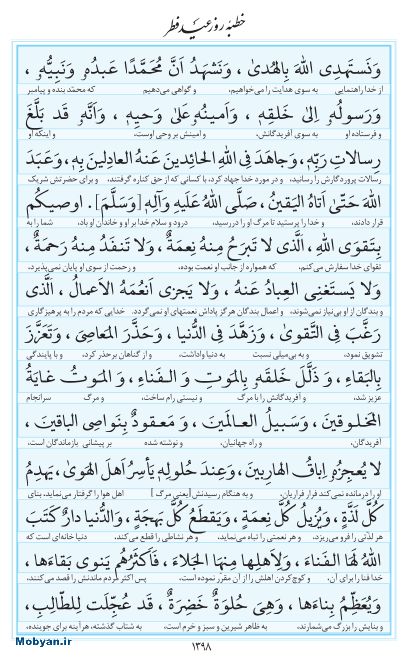 خطبهٔ روز عید فطر
وَنَستَهدِی اللّٰهَ بِالهُدیٰ، وَنَشهَدُ اَنَّ مُحَمَّدًا عَبدُهُ وَنَبِیُّهُ،
از خدا راهنمایی به سوی هدایت را می‌خواهیم، و گواهی می‌دهیم که محمّد بنده و پیامبر
وَرَسولُهُ اِلیٰ خَلقِهِ، وَاَمینُهُ عَلیٰ وَحیِهِ، وَاَنَّهُ قَد بَلَّغَ
و فرستاده او به سوی آفریدگانش، و امینش بر وحی اوست، و اینکه او
رِسالاتِ رَبِّهِ، وَجاهَدَ فِی اللّٰهِ الحائِدینَ عَنهُ العادِلینَ بِهِ، وَعَبَدَ
رسالات پروردگارش را رسانید، و در مورد خدا جهاد کرد، با کسانی که از حق کناره گرفتند، و برای حضرتش شریک
اللّٰهَ حَتّیٰ اَتاهُ الیَقینُ، صَلَّی اللّٰهُ عَلَیهِ وَآلِهِ [وَسَلَّمَ]. اوصیکُم
قرار دادند، و خدا را پرستید تا مرگ او را دررسید، درود و سلام خدا بر او و خاندان او باد، شما را به
بِتَقوَی اللّٰهِ، الَّذی لا تَبرَحُ مِنهُ نِعمَةٌ، وَلا تَنفَدُ مِنهُ رَحمَةٌ،
تقوای خدا سفارش می‌کنم، که همواره از جانب او نعمت بوده، و رحمت از سوی او پایان نمی‌پذیرد،
وَلا یَستَغنِی العِبادُ عَنهُ، وَلا یَجزی اَنعُمَهُ الاَعمالُ، الَّذی
و بندگان از او بی‌نیاز نمی‌شوند، و اعمال بندگان هرگز پاداش نعمتهای او نمی‌گردد. خدایی که مردم را به پرهیزگاری
رَغَّبَ فِی التَّقویٰ، وَزَهَّدَ فِی الدُّنیا، وَحَذَّرَ المَعاصِیَ، وَتَعَزَّزَ
تشویق نمود، و به بی‌میلی نسبت به دنیا واداشت، و از گناهان برحذر کرد، و با پایندگی
بِالبَقاءِ، وَ ذَلَّلَ خَلقَهُ بِالمَوتِ وَ الفَناءِ، وَ المَوتُ غایَةُ
عزیز شد، و آفریدگانش را با مرگ و نیستی رام ساخت، و مرگ سرانجام
المَخلوقینَ، وَسَبیلُ العالَمینَ، وَ مَعقودٌ بِنَواصِی الباقینَ،
آفریدگان، و راه جهانیان، و نوشته شده بر پیشانی بازماندگان است،
لا یُعجِزُهُ اِباقُ الهارِبینَ، وَعِندَ حُلولِهِ یَأسِرُ اَهلَ الهَویٰ، یَهدِمُ
او را درمانده نمی‌کند فرار فراریان، و به هنگام رسیدنش [یعنی مرگ] اهل هوا را گرفتار می‌نماید، بنای
کُلَّ لَذَّةٍ، وَیُزیلُ کُلَّ نِعمَةٍ، وَیَقطَعُ کُلَّ بَهجَةٍ، وَالدُّنیا دارٌ کَتَبَ
هر لذّتی را فرو می‌ریزد، و هر نعمتی را تباه می‌نماید، و هر نشاطی را قطع می‌کند، دنیا خانه‌ای است که
اللّٰهُ لَهَا الفَناءَ، وَلِاَهلِها مِنهَا الجَلاءَ، فَاَکثَرُهُم یَنوی بَقاءَها،
خدا فنا را برای آن، و کوچ‌کردن اهلش را از آن مقرر نموده است، پس اکثر مردم ماندنش را قصد می‌کنند،
وَیُعَظِّمُ بِناءَها، وَهِیَ حُلوَةٌ خَضِرَةٌ، قَد عُجِّلَت لِلطّالِبِ،
و بنایش را بزرگ می‌شمارند، به ظاهر شیرین و سبز و خرم است، به شتاب گذشته، هرآینه برای جوینده،
Mobyan.ir
۱۳۹۸